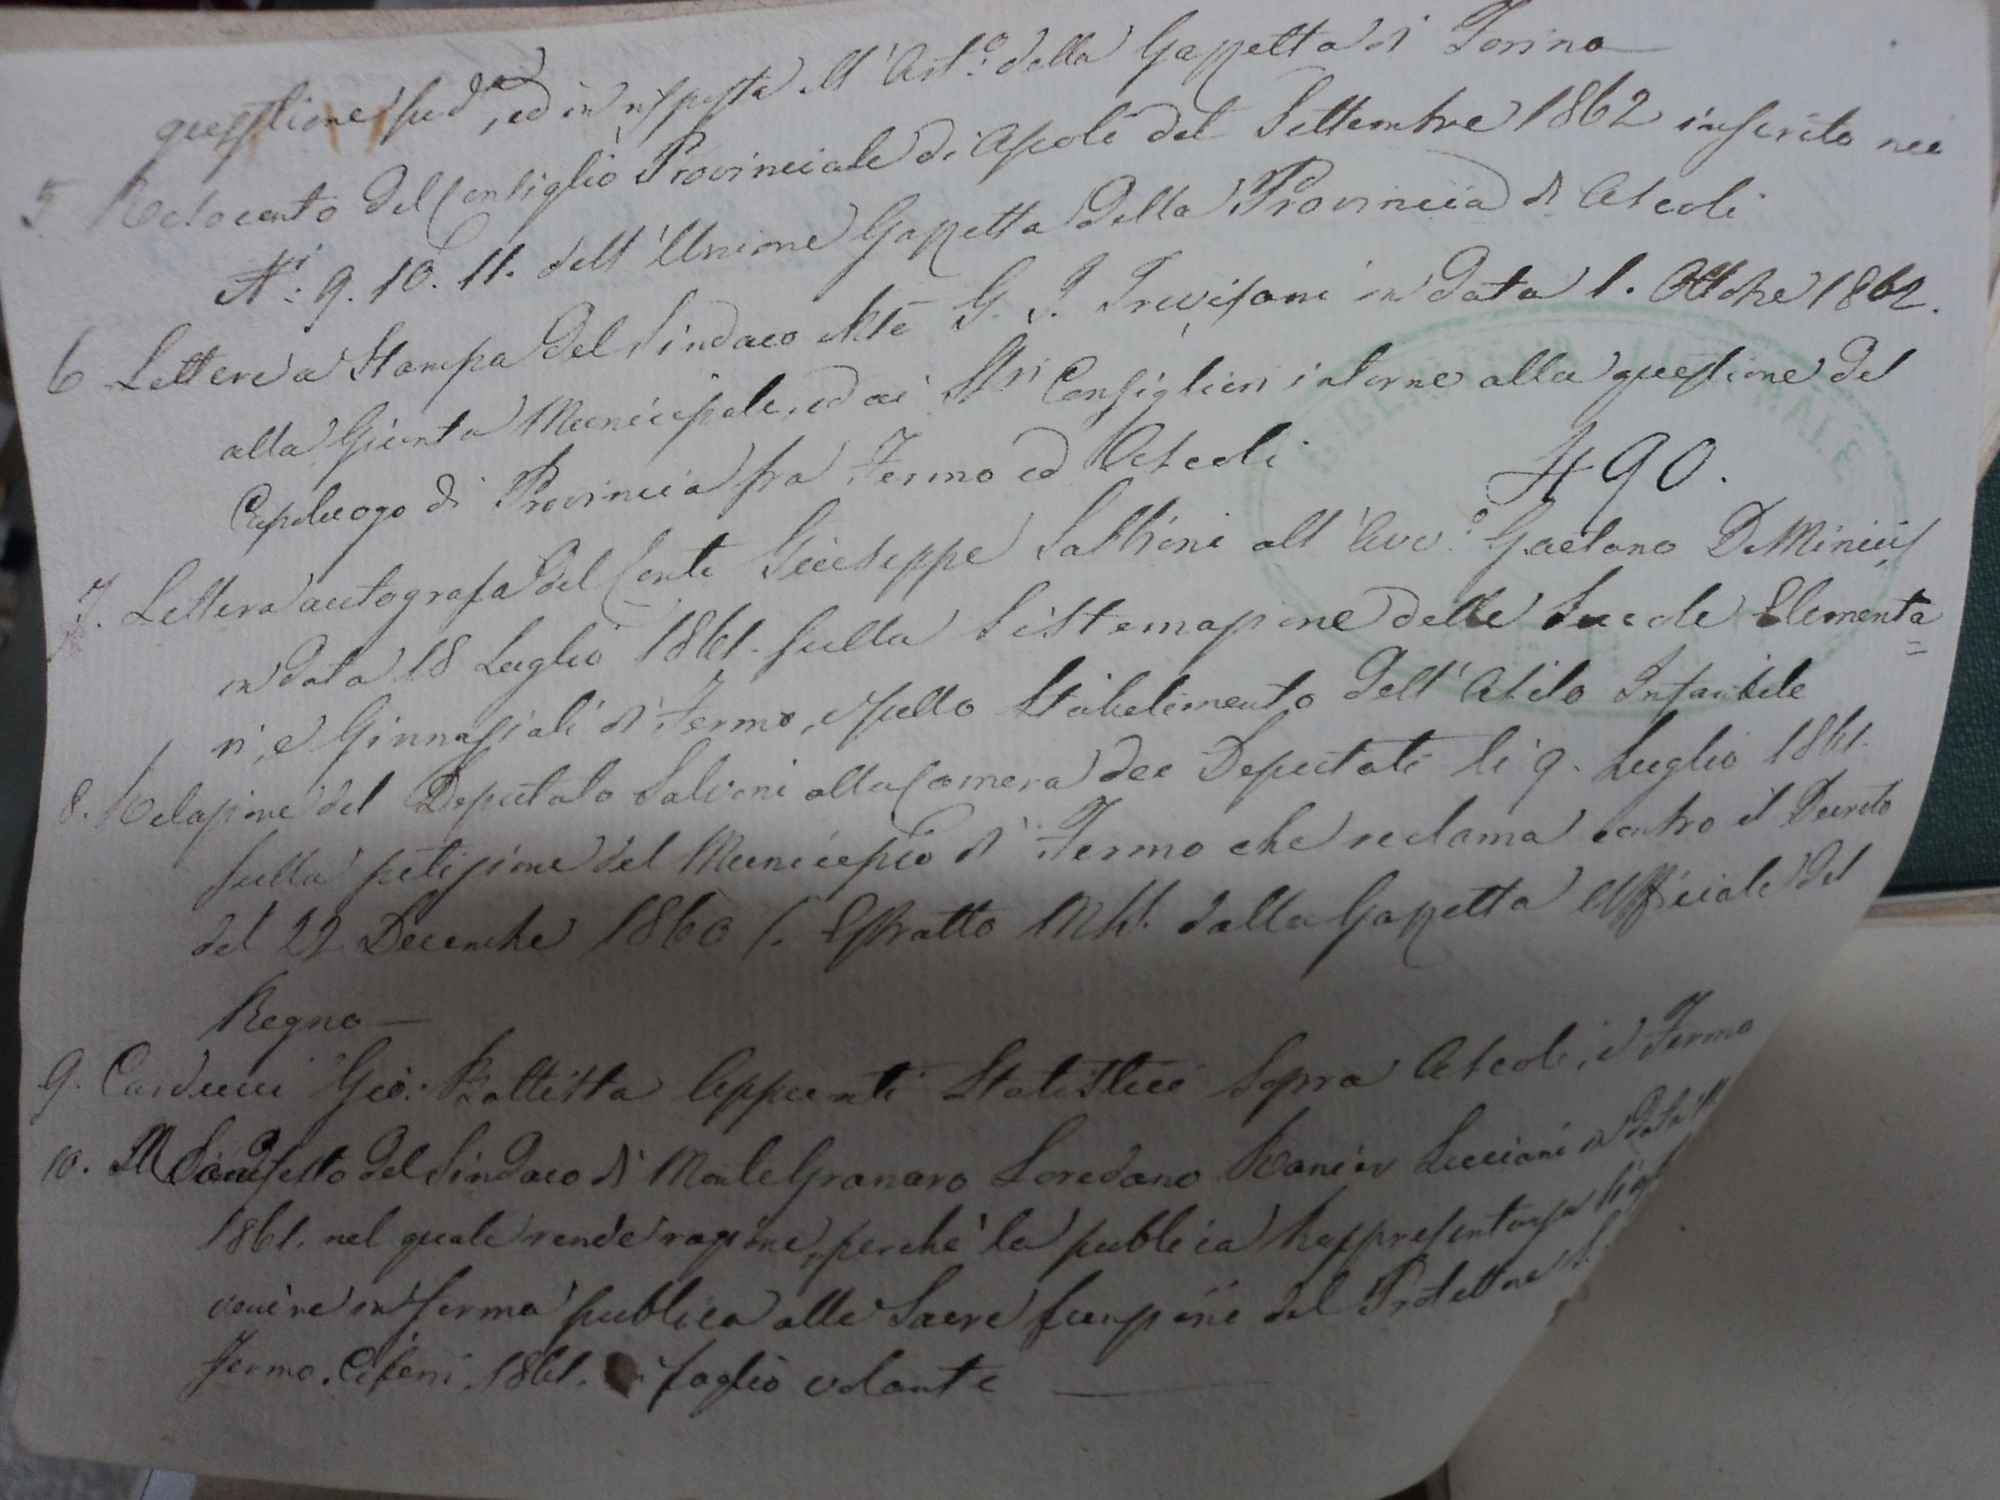 questione sud.a, ed in risposta all'Art.o della Gazzetta di Torino
5 Resoconto del Consiglio Provinciale di Ascoli del Settembre 1862 inserito nei
Ni: 9. 10. 11. dell'Unione Gazzetta della Provincia di Ascoli
6 Lettere a Stampa del Sindaco M.se G. I. Trevisani in data 1. Ottobre 1862.
alla Giunta Municipale, ed ai Sri Consiglieri intorno alla questione del
Capoluogo di Provincia fra Fermo ed Ascoli
490.
7. Lettera autografa del Conte Giuseppe Sabbioni all'Avv.o Gaetano De Minicis
in data 18 Luglio 1861. sulla Sistemazione delle Scuole Elementa=
ri, e Ginnasiali di Fermo, e sullo Stabilimento dell'Asilo Infantile
8. Relazione del Deputato Salvoni alla Camera dei Deputati li 9. Luglio 1861.
sulla petizione del Municipio di Fermo che reclama contro il Decreto
del 22 Decembre 1860 /. Estratto MS. dalla Gazzetta Officiale del
Regno—
9. Carducci Gio: Battista Appunti Statistici sopra Ascoli, e Fermo
10. Manifesto del Sindaco di Monte Granaro Loredano Ranier Lucciani in data
1861. nel quale rende ragione, perchè la publica Rappresentanza
venire in forma publica alle Sacre funzioni del Protettore
Fermo. Ciferri. 1861. foglio volante —